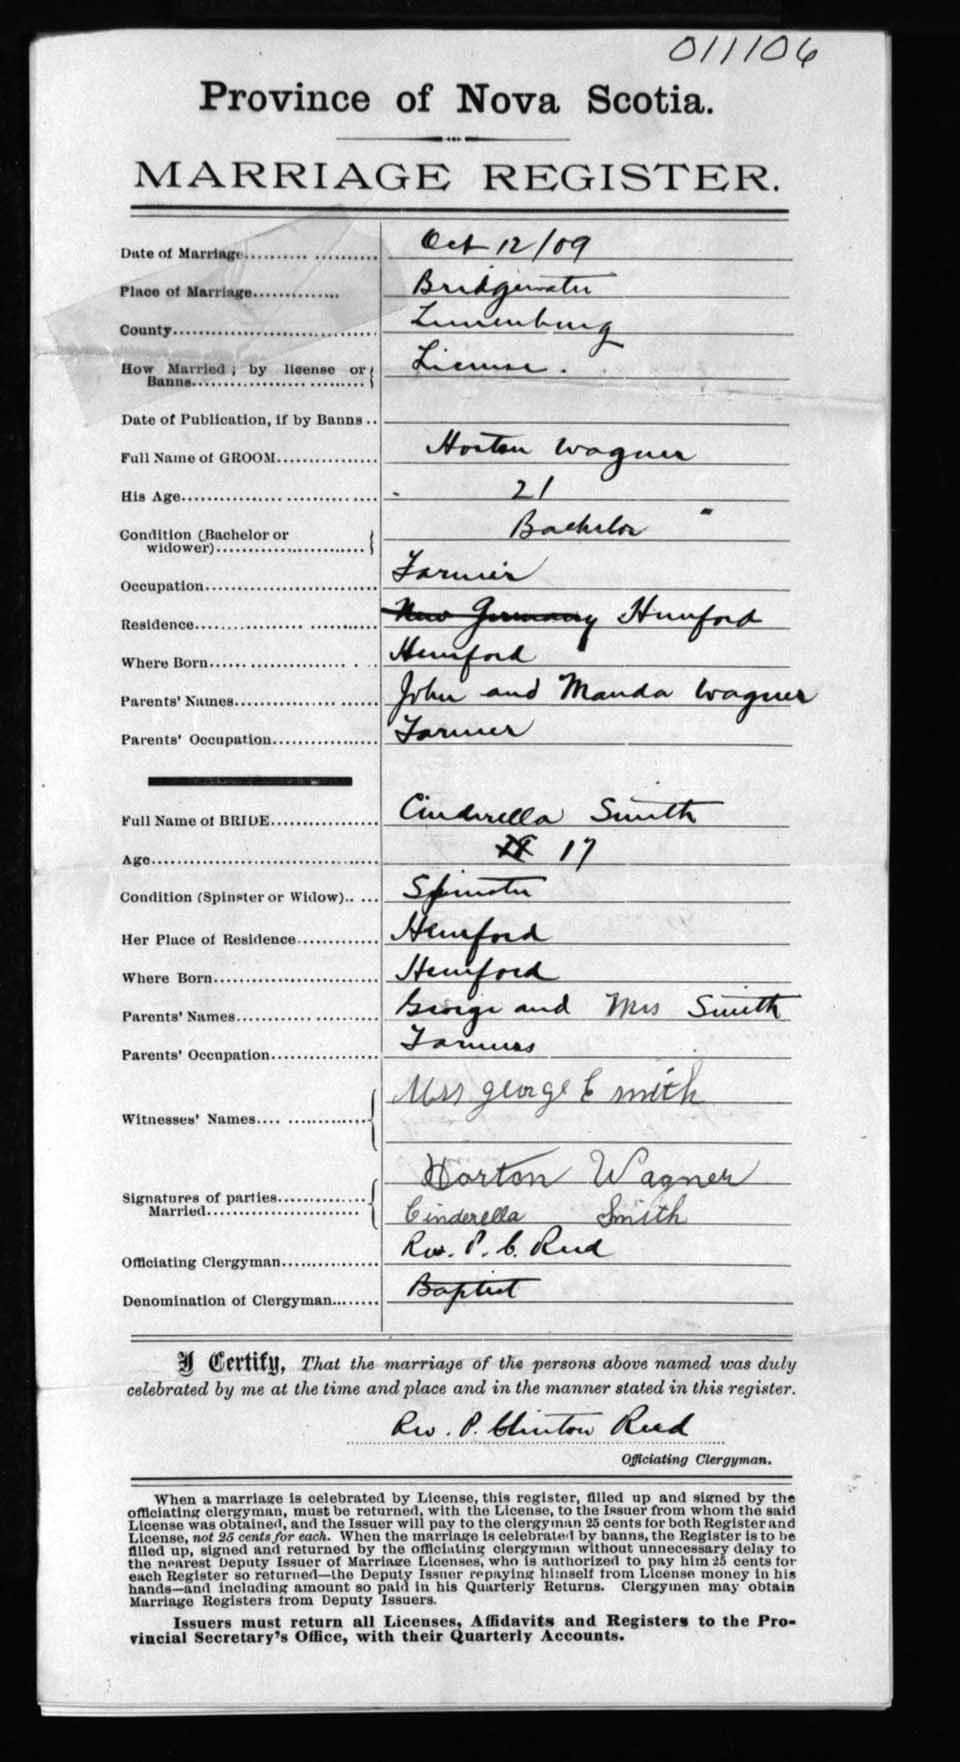 011106
Province of Nova Scotia.
MARRIAGE REGISTER.
Date of Marriage.................... Oct 12/09
Place of Marriage............. Bridgewater
County............................... Lunenburg
How Married ; by license or
Banns........................... License.
Date of Publication, if by Banns ..
Full Name of GROOM............... Horton Wagner
His Age............................. 21
Condition (Bachelor or
widower)....................... Bachelor
Occupation.......................... Farmer
Residence........................... New Germany Hemford
Where Born......................... Hemford
Parents' Names...................... John and Manda Wagner
Parents' Occupation................ Farmer
Full Name of BRIDE................ Cinderella Smith
Age.................................. 18 17
Condition (Spinster or Widow)..... Spinster
Her Place of Residence............ Hemford
Where Born......................... Hemford
Parents' Names...................... George and Mrs Smith
Parents' Occupation................ Farmers
Witnesses' Names.................. Mrs george Smith
Signatures of parties............... Horton Wagner
Married....................... Cinderella Smith
Officiating Clergyman............... Rev. P. C. Reed
Denomination of Clergyman........ Baptist
I Certify, That the marriage of the persons above named was duly
celebrated by me at the time and place and in the manner stated in this register.
Rev. P. Clinton Reed
Officiating Clergyman.
When a marriage is celebrated by License, this register, filled up and signed by the
officiating clergyman, must be returned, with the License, to the Issuer from whom the said
License was obtained, and the Issuer will pay to the clergyman 25 cents for both Register and
License, not 25 cents for each. When the marriage is celebrated by banns, the Register is to be
filled up, signed and returned by the officiating clergyman without unnecessary delay to
the nearest Deputy Issuer of Marriage Licenses, who is authorized to pay him 25 cents for
each Register so returned—the Deputy Issuer repaying himself from License money in his
hands—and including amount so paid in his Quarterly Returns. Clergymen may obtain
Marriage Registers from Deputy Issuers.
Issuers must return all Licenses, Affidavits and Registers to the Pro-
vincial Secretary's Office, with their Quarterly Accounts.